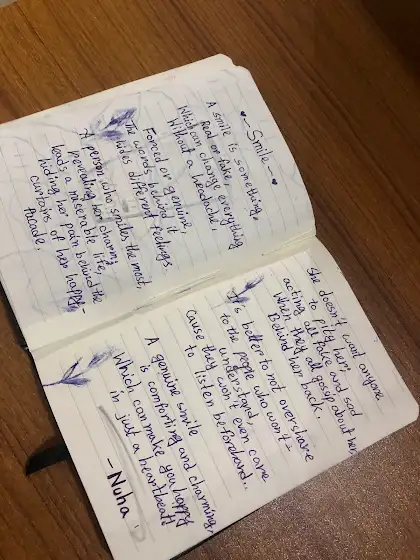 Smile
A smile is something,
Real or fake,
Which can change everything
Without a headache.
Forced or genuine,
The words behind it
hides different feelings
A person who smiles the most,
revealing her charm,
leads a miserable life,
hiding her pain behind the
curtains of her happy-
facade,
She doesn't want anyone
to pity her,
acting all fake and sad
When they all gosip about her
Behind her back,
It's better to not overshare
to the people who won't
understand,
cause they won't even care
to listen beforehand..
A genuine smile
is comforting and charming,
Which can make you happy
in just a heartbeat!
- Nuha.